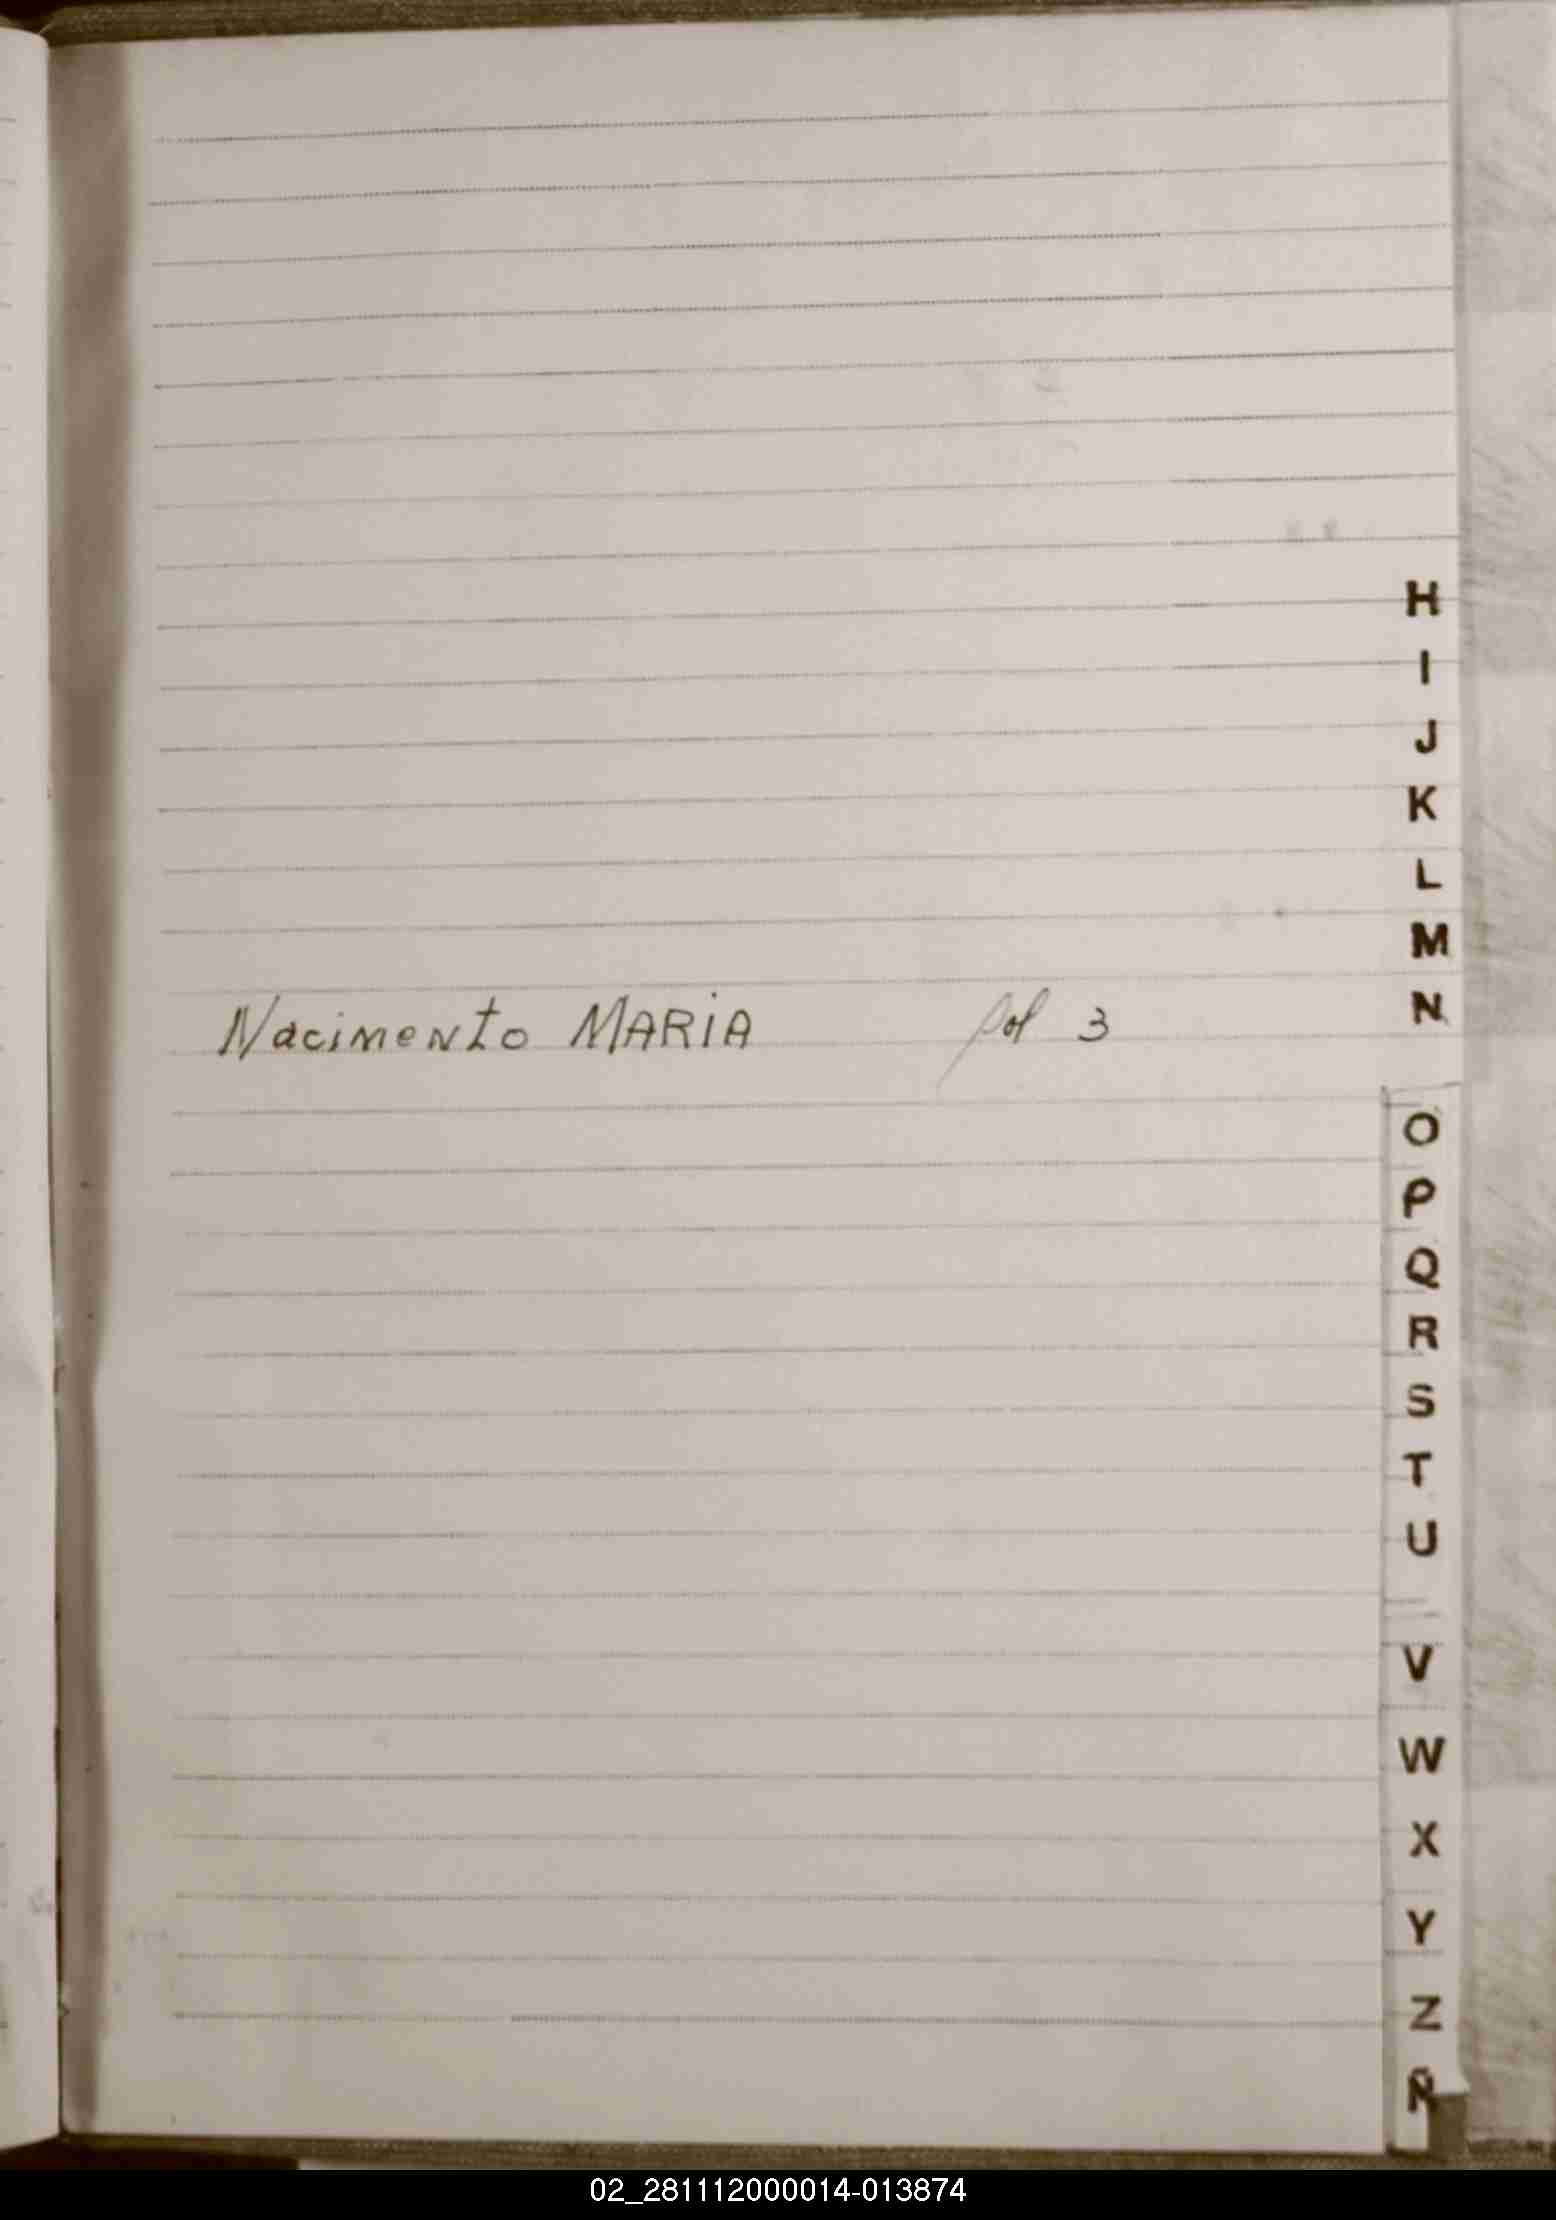 H
I
J
K
L
M
N
Nacimento MARIA fol 3
O
P
Q
R
S
T
U
V
W
X
Y
Z
Ñ
02_281112000014-013874